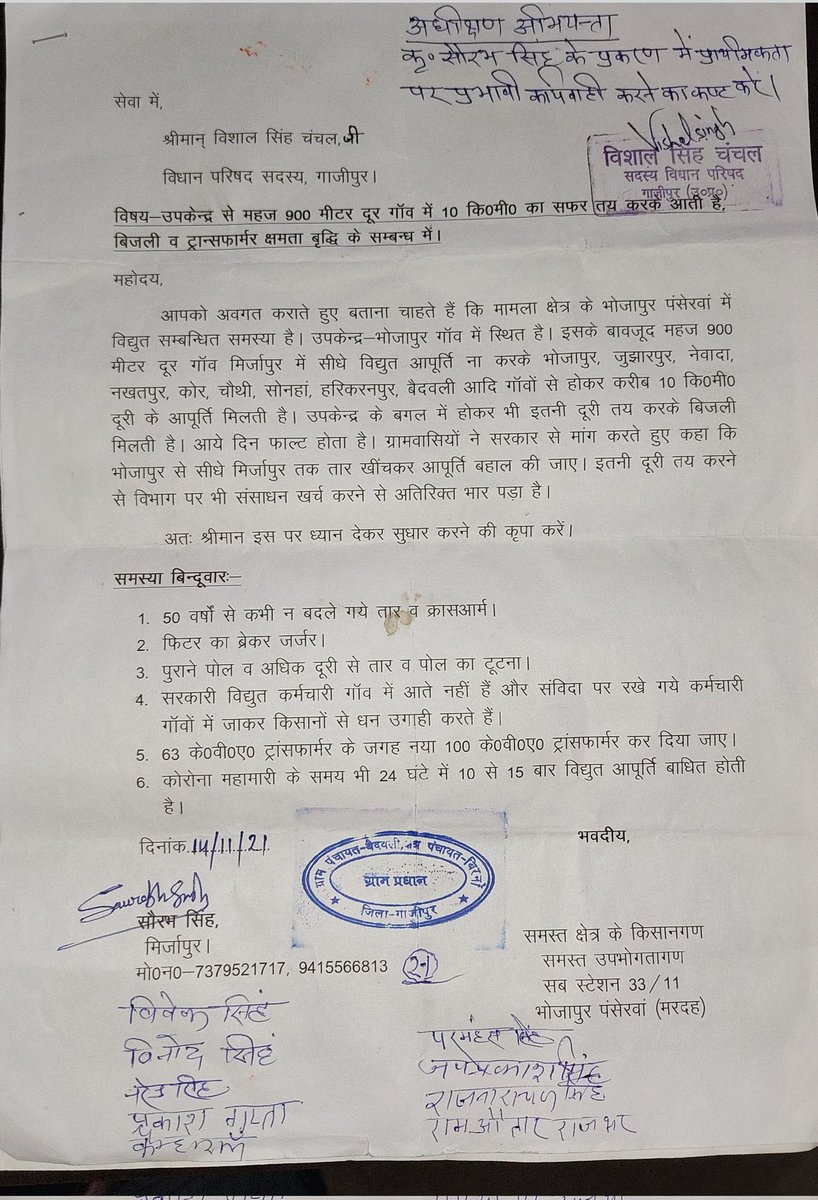 अधीक्षण अभियन्ता
कृ० सौरभ सिंह के प्रकरण में प्राथमिकता
पर प्रभावी कार्यवाही करने का कष्ट करें।
Vishal Singh
विशाल सिंह चंचल
सदस्य विधान परिषद
गाजीपुर (उ०प्र०)
सेवा में,
श्रीमान् विशाल सिंह चंचल, जी
विधान परिषद सदस्य, गाजीपुर।
विषय–उपकेन्द्र से महज 900 मीटर दूर गॉव में 10 कि0मी0 का सफर तय करके आती है,
बिजली व ट्रान्सफार्मर क्षमता बृद्धि के सम्बन्ध में।
महोदय,
आपको अवगत कराते हुए बताना चाहते हैं कि मामला क्षेत्र के भोजापुर पंसेरवां में
विद्युत सम्बन्धित समस्या है। उपकेन्द्र–भोजापुर गॉव में स्थित है। इसके बावजूद महज 900
मीटर दूर गॉव मिर्जापुर में सीधे विद्युत आपूर्ति ना करके भोजापुर, जुझारपुर, नेवादा,
नखतपुर, कोर, चौथी, सोनहां, हरिकरनपुर, बैदवली आदि गॉवों से होकर करीब 10 कि0मी0
दूरी के आपूर्ति मिलती है। उपकेन्द्र के बगल में होकर भी इतनी दूरी तय करके बिजली
मिलती है। आये दिन फाल्ट होता है। ग्रामवासियों ने सरकार से मांग करते हुए कहा कि
भोजापुर से सीधे मिर्जापुर तक तार खींचकर आपूर्ति बहाल की जाए। इतनी दूरी तय करने
से विभाग पर भी संसाधन खर्च करने से अतिरिक्त भार पड़ा है।
अतः श्रीमान इस पर ध्यान देकर सुधार करने की कृपा करें।
समस्या बिन्दूवारः–
1. 50 वर्षो से कभी न बदले गये तार व क्रासआर्म।
2. फिटर का ब्रेकर जर्जर।
3. पुराने पोल व अधिक दूरी से तार व पोल का टूटना।
4. सरकारी विद्युत कर्मचारी गॉव में आते नहीं हैं और संविदा पर रखे गये कर्मचारी
गॉवों में जाकर किसानों से धन उगाही करते हैं।
5. 63 के0वी0ए0 ट्रांसफार्मर के जगह नया 100 के0वी0ए0 ट्रांसफार्मर कर दिया जाए।
6. कोरोना महामारी के समय भी 24 घंटे में 10 से 15 बार विद्युत आपूर्ति बाधित होती
है।
दिनांक.14/11/21
भवदीय,
ग्राम पंचायत-बैदवली, क्षेत्र पंचायत-बिरनो
ग्राम प्रधान
जिला-गाजीपुर
Saurabh Singh
सौरभ सिंह,
मिर्जापुर।
मो0न0–7379521717, 9415566813
समस्त क्षेत्र के किसानगण
समस्त उपभोगतागण
सब स्टेशन 33/11
भोजापुर पंसेरवां (मरदह)
विवेक सिंह
विनोद सिंह
प्रकाश गुप्ता
परमहंस सिंह
जयप्रकाश सिंह
राजनारायण सिंह
रामऔतार राजभर